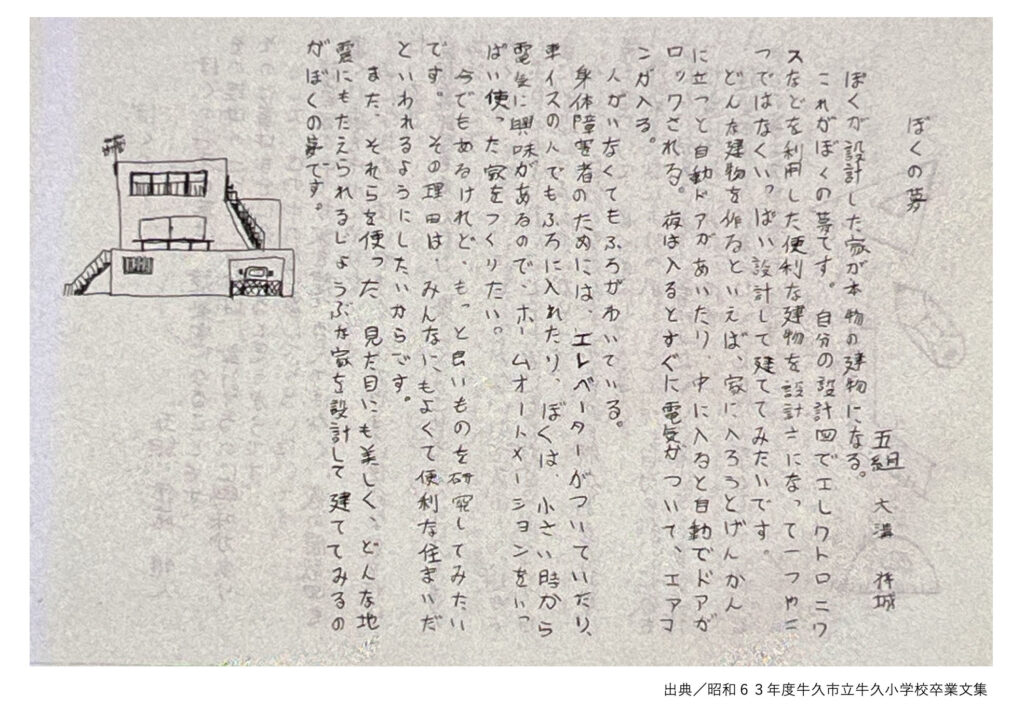 ぼくの夢
五組 大溝 
ぼくが設計した家が本物の建物になる。
これがぼくの夢です。自分の設計図でエレクトロニク
スなどを利用した便利な建物を設計士になって一つや二
つではなくいっぱい設計して建ててみたいです。
どんな建物を作るといえば、家に入ろうとげんかん
に立つと自動ドアがあいたり、中に入ると自動でドアが
ロックされる。夜は入るとすぐに電気がついて、エアコ
ンが入る。
人がいなくてもふろがわいている。
身体障害者のためには、エレベーターがついていたり、
車イスの人でもふろに入れたり、ぼくは、小さい時から
電気に興味があるので、ホームオートメーションをいっ
ぱい使った家をつくりたい。
今でもあるけれど、もっと良いものを研究してみたい
です。その理由は、みんなにもよくて便利な住まいだ
といわれるようにしたいからです。
また、それらを使った、見た目にも美しく、どんな地
震にもたえられるじょうぶな家を設計して建ててみるの
がぼくの夢です。
出典／昭和６３年度牛久市立牛久小学校卒業文集